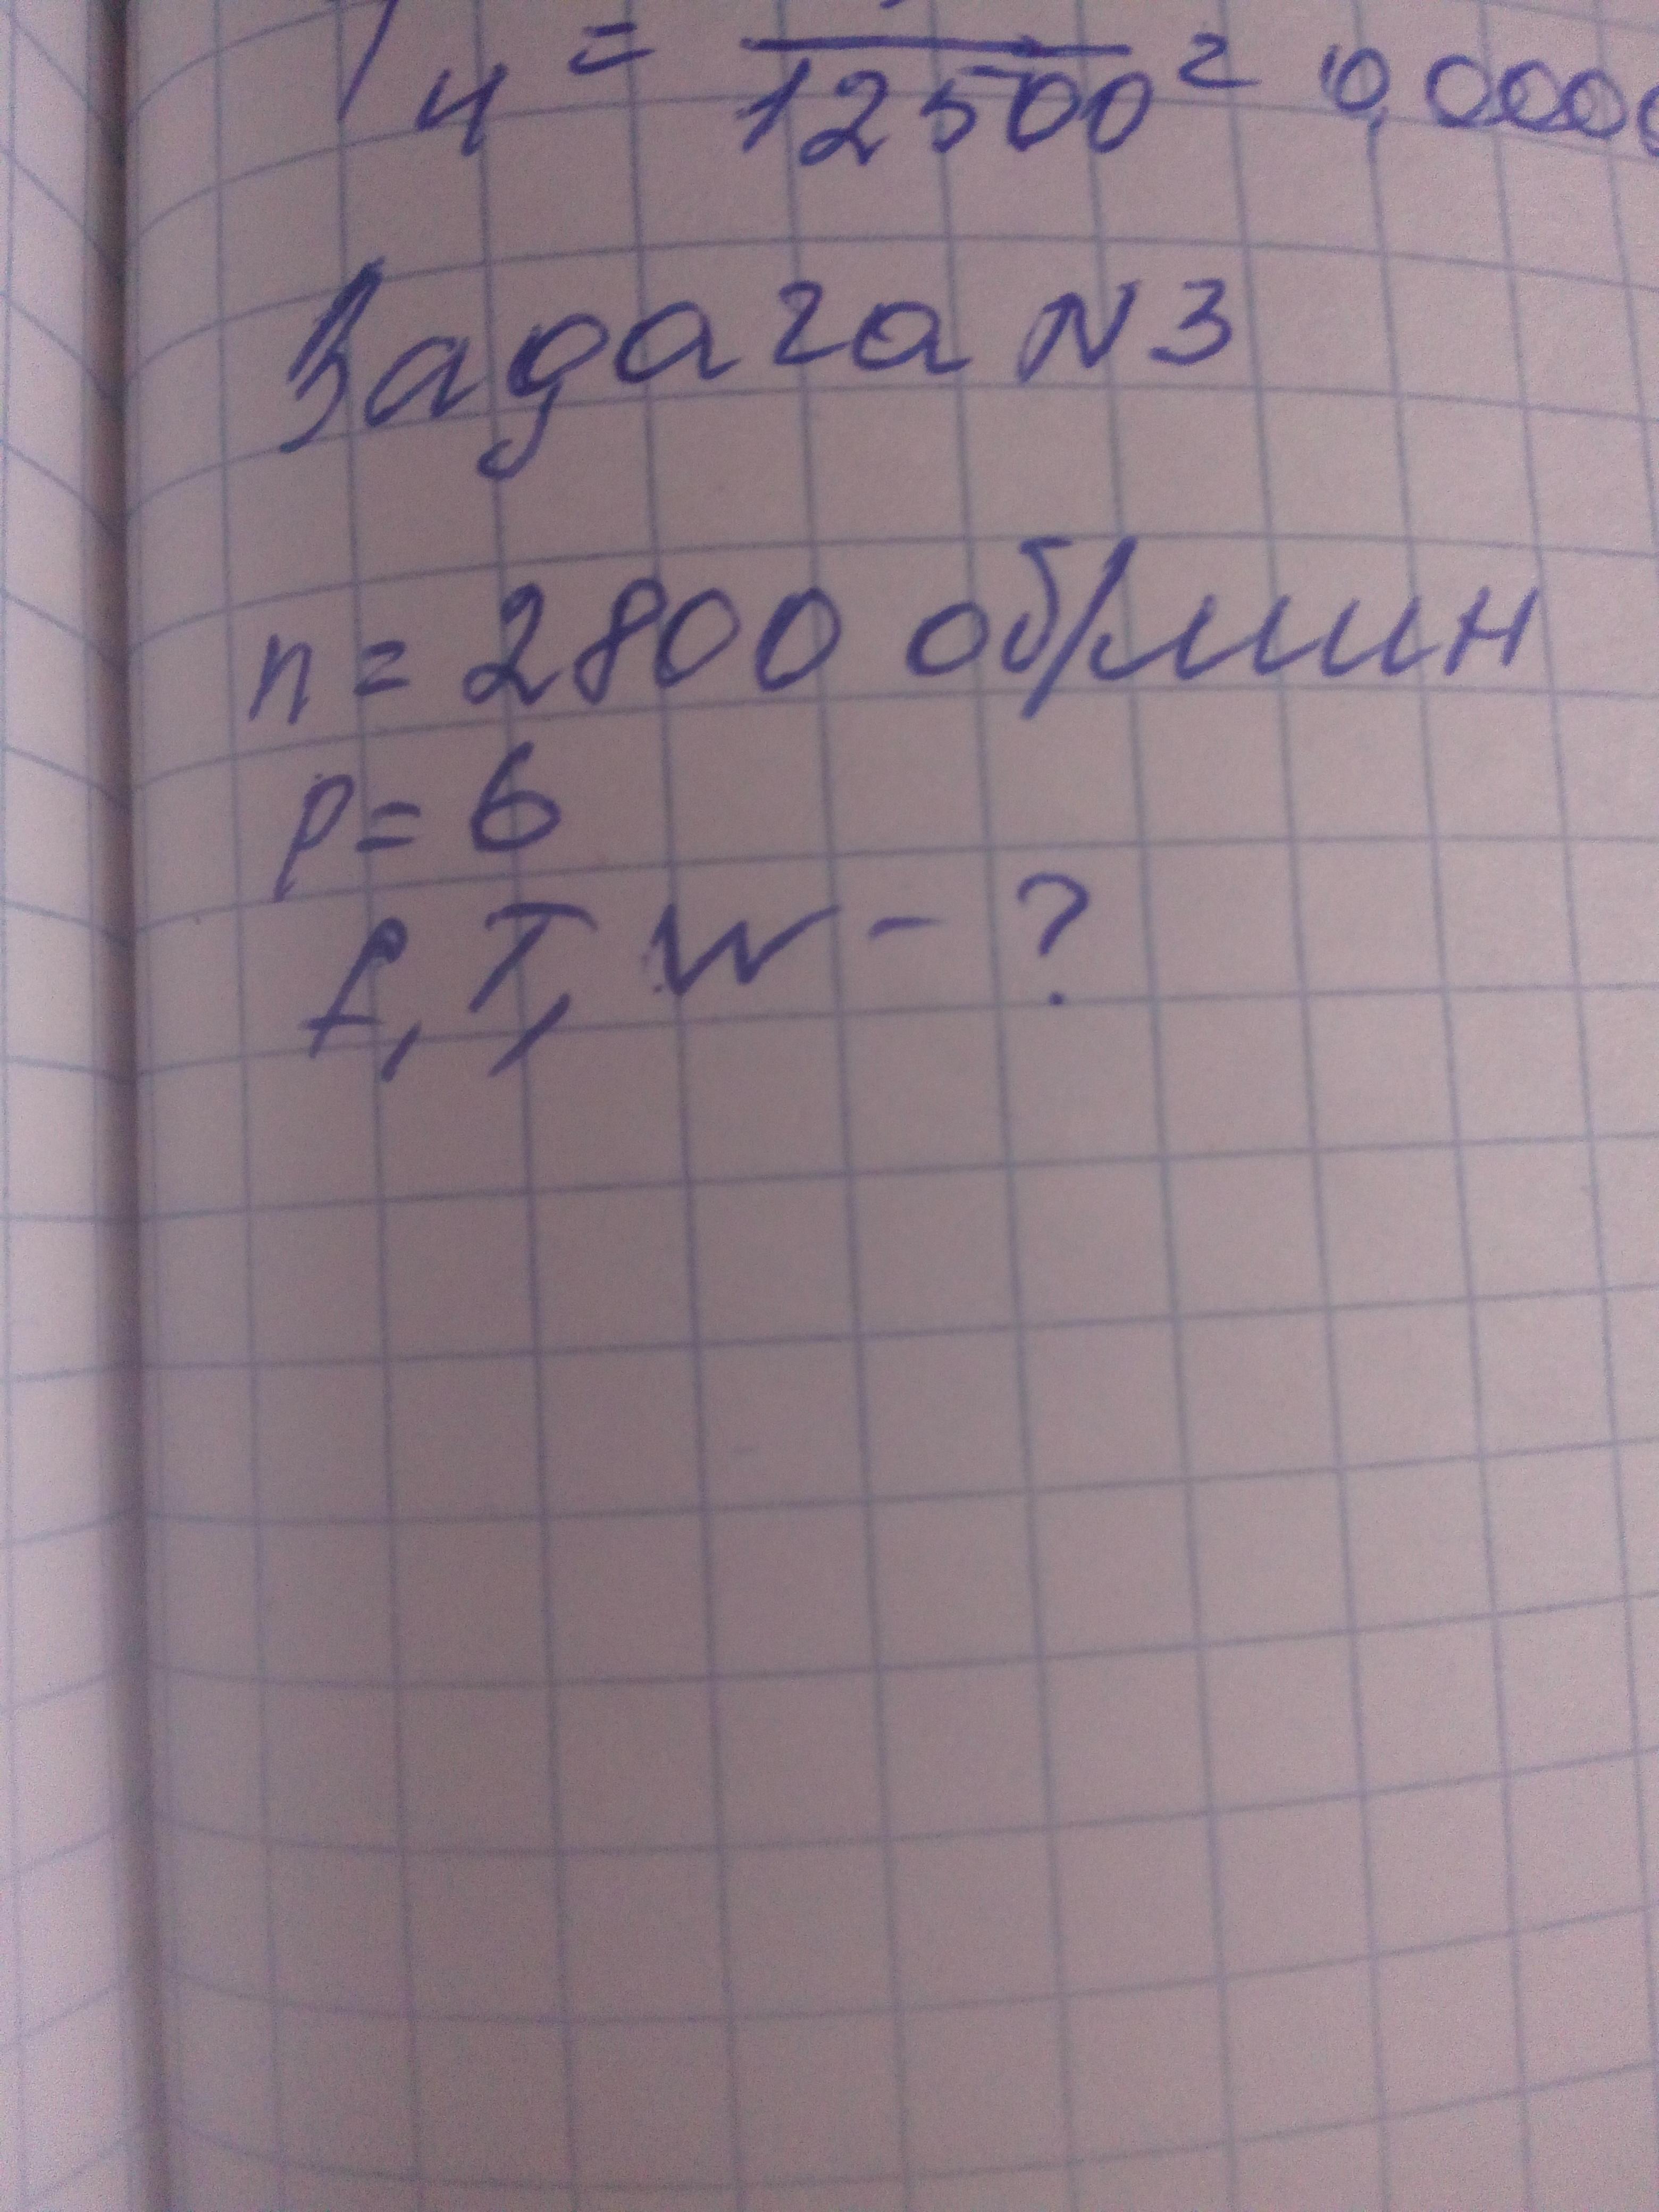 T₄ = ―― 12500 = 0,0000
Задача N3
n = 2800 об/мин
p = 6
f, T, w - ?